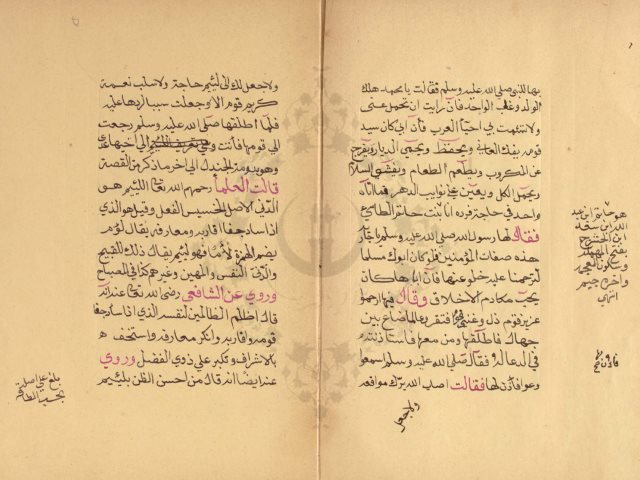 بها للنبي صلى الله عليه وسلم فقالت يا محمد هلك
الولد وغاب الواحد فان رايت ان تخلي عني
ولا تشمت بي احياء العرب فان ابي كان سيد
قومه يفك العاني ويحفظ ويحمي الديار ويفرج
عن المكروب ويطعم الطعام ويفشي السلام
ويحمل الكل ويعين على نوايب الدهر فما اتاه
واحد في حاجة فرده انا بنت حاتم الطائي
فقال لها رسول الله صلى الله عليه وسلم يا جارية
هذه صفات المؤمنين فلو كان ابوك مسلما
لترحمنا عليه خلوا عنها فان اباها كان
يحب مكارم الاخلاق وقال فيها ارحموا
عزيز قوم ذل وغني افتقر وعالما ضاع بين
جهال فاطلقها ومن معها فاستاذنته
في الدعاء له فقال صلى الله عليه وسلم اسمعوا
وعوا فاذن لها فقالت اصاب الله ببرك مواقعه
ولا جعل
هو حاتم ابن عبد
الله ابن سعد
ابن الحشرج
بفتح المهملة
وسكون المعجمة
واخره جيم
انتهى
ولا جعل لك الى لئيم حاجة ولا سلب نعمة
كريم قوم الا وجعلك سببا لردها عليه
فلما اطلقها صلى الله عليه وسلم رجعت
الى قومها فاتت الى اخيها عدي
وهو بدومة الجندل الى اخر ما ذكر من القصة
قالت العلماء رحمهم الله تعالى اللئيم هو
الدني الاصل الخسيس الفعل وقيل هو الذي
اذا ساد جفا اقاربه ومعارفه يقال لؤم
بضم الهمزة لأما فهو لئيم يقال ذلك للقبيح
والدني النفس والمهين وغيرهم كذا في المصباح
وروي عن الشافعي رضي الله تعالى عنه انه
قال اظلم الظالمين لنفسه الذي اذا ساد جفا
قومه واقاربه وانكر معارفه واستخف
بالاشراف وتكبر على ذوي الفضل وروي
عنه ايضا انه قال من احسن الظن بلئيم
بلغ على اصله
بحسب الطاقة